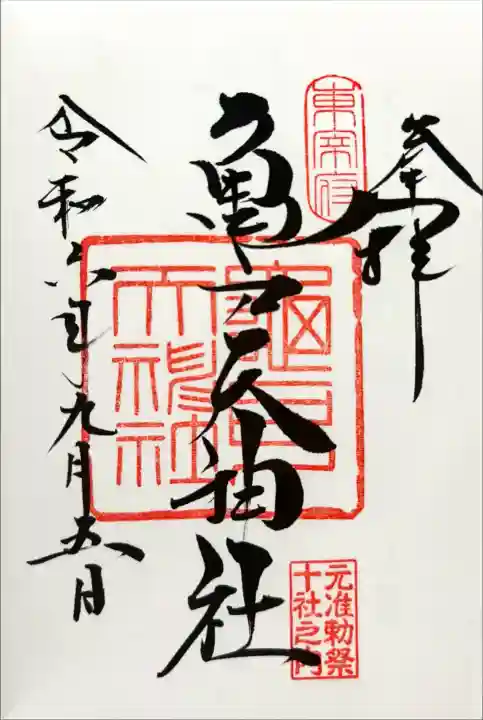 奉拝
東宰府
亀戸天神社
龜戸天神社
元准勅祭
十社之内
令和六年九月五日